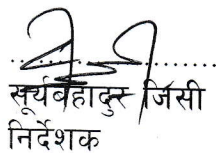 सूर्यबहादुर जिसी
निर्देशक